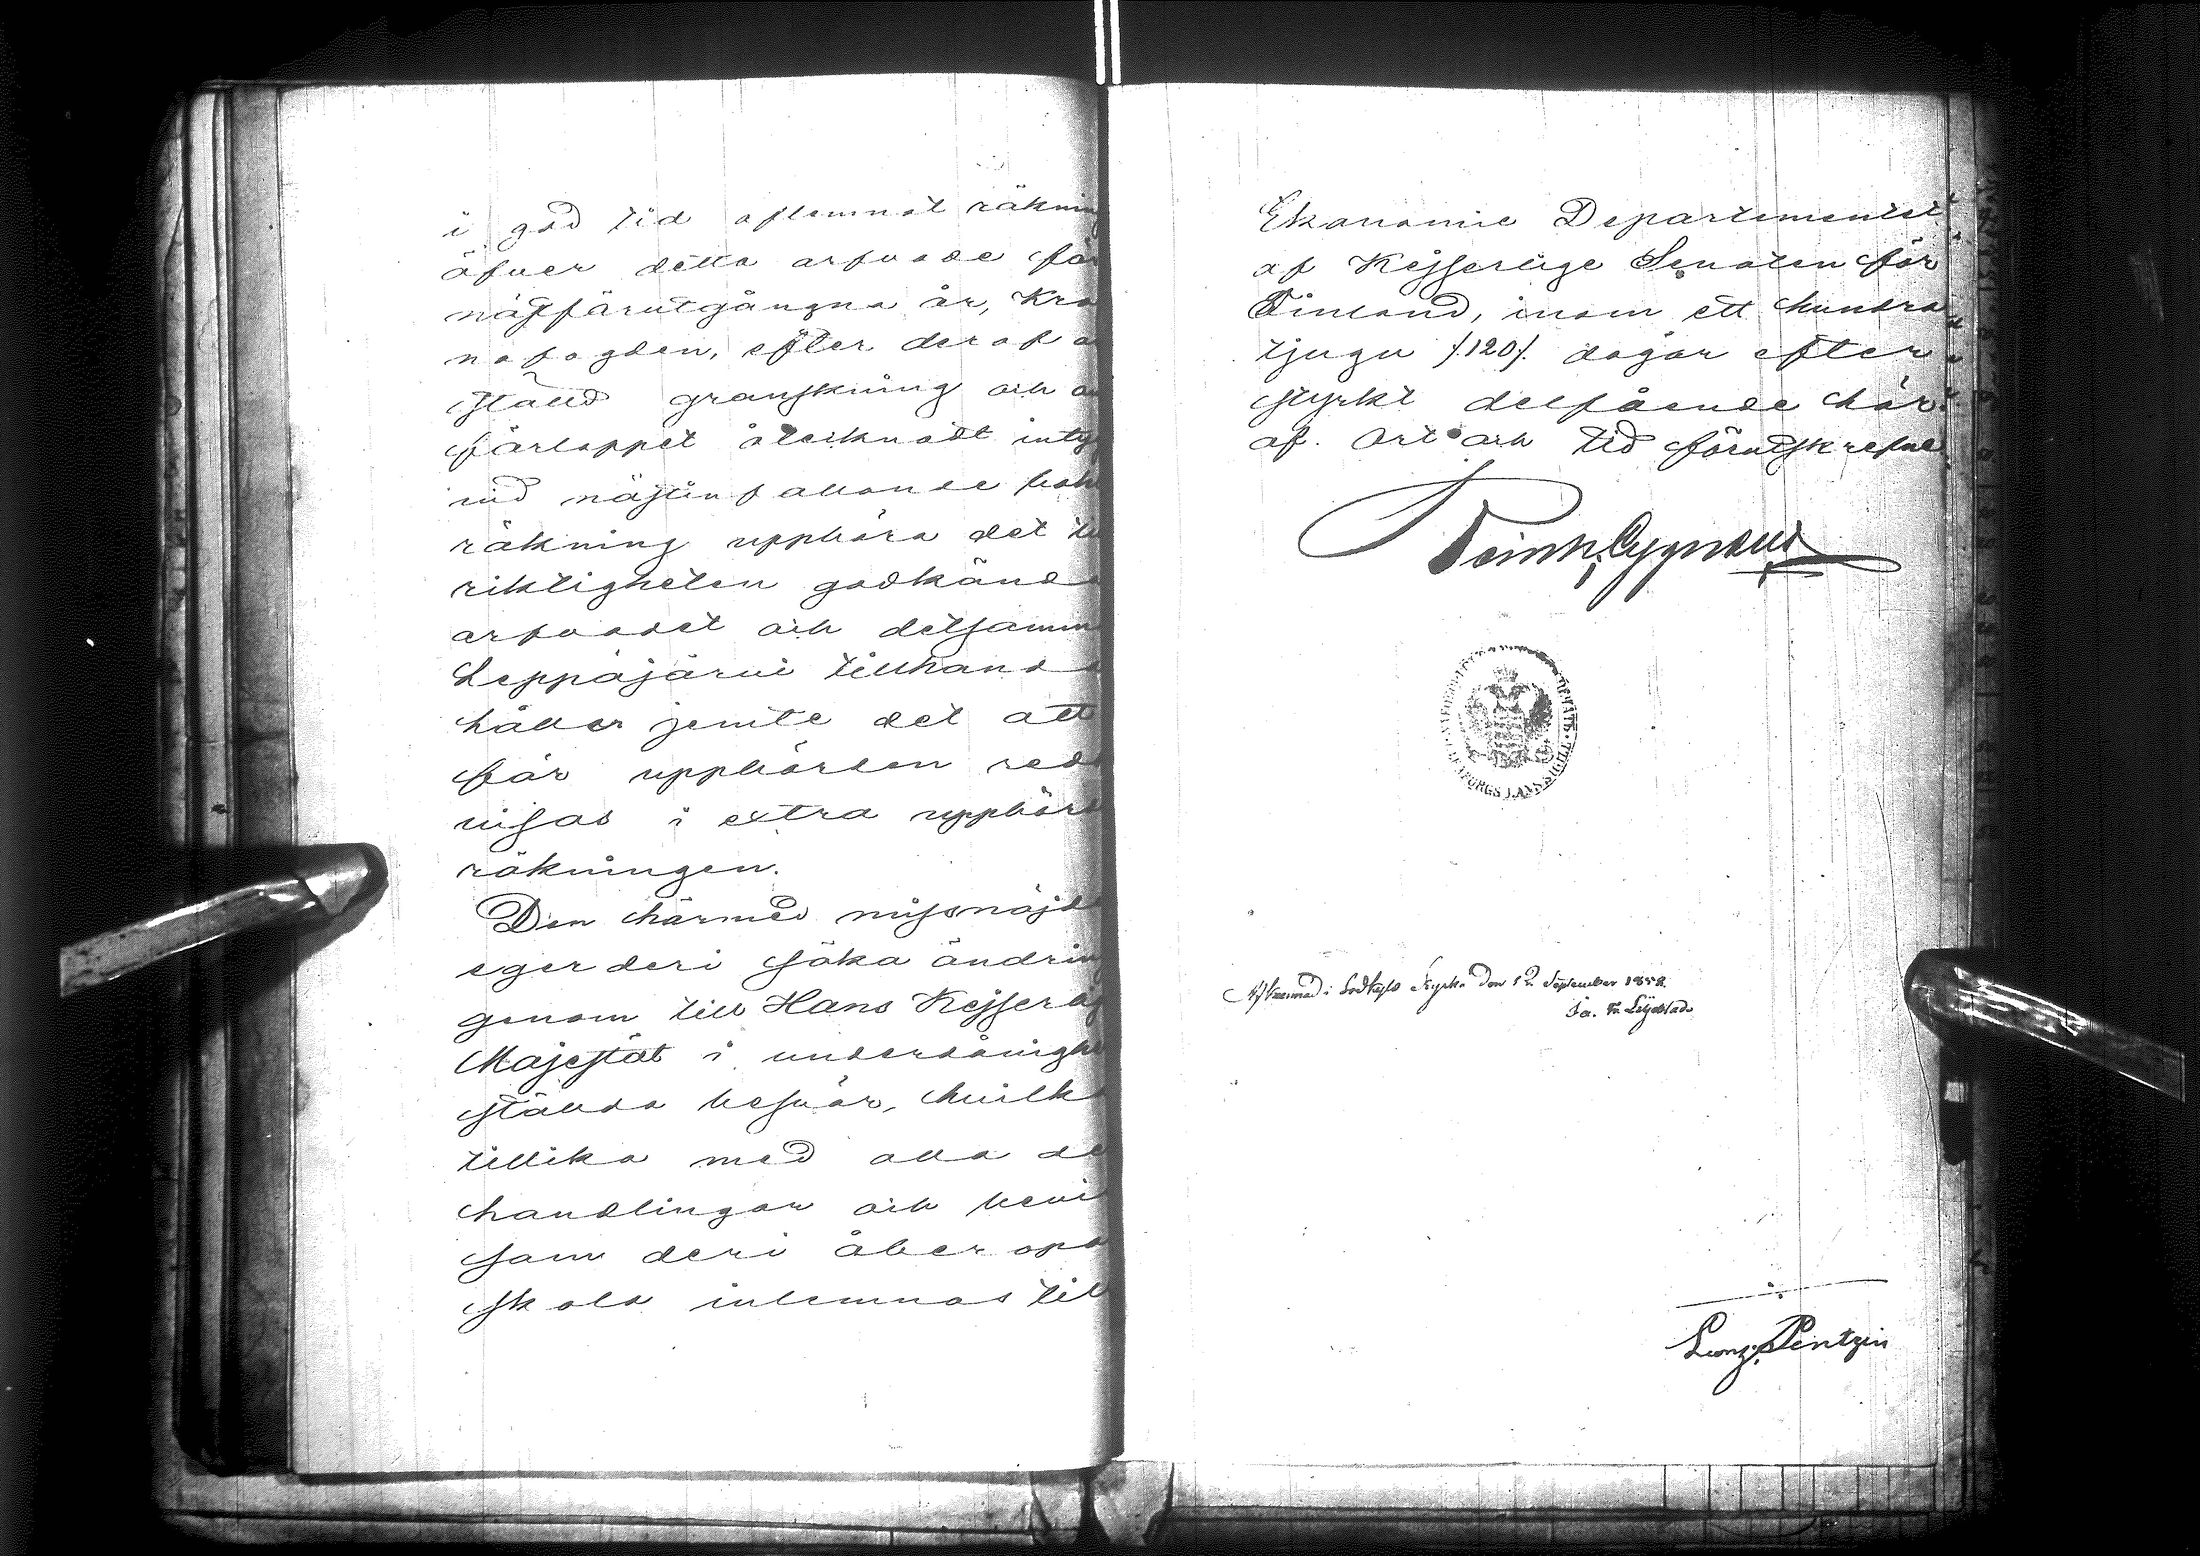 i god tid aflemnat räkning
öfver detta arfvode för
nästförutgångna år, Kro
nofogden, efter deraf an
stäld granskning och å
förloppet åtecknadt intyg
vid näst infallande bok
räkning uppböra det till
riktigheten godkända
arfvodet och detsamma
Leppäjärvi tillhanda
håller jemte det att
för uppbörden redo
visas i extra uppbörds
räkningen.
Den härmed missnöjde
eger deri söka ändring
genom till Hans Kejserlig
Majestät i underdånighet
stälda besvär, hvilka
tillika med alla de
handlingar och bevis
som deri åberopas
skola inlemnas till
Ekonomie Departementet
af Kejserlige Senaten för
Finland, inom ett hundra
tjugu /:120:/ dagar efter
styrkt delfående här
af. Ort och tid förutskrefne.
Cygnæus
LÄNS SIGILL
i Kyrka den 12 September 1858.
Pentzin